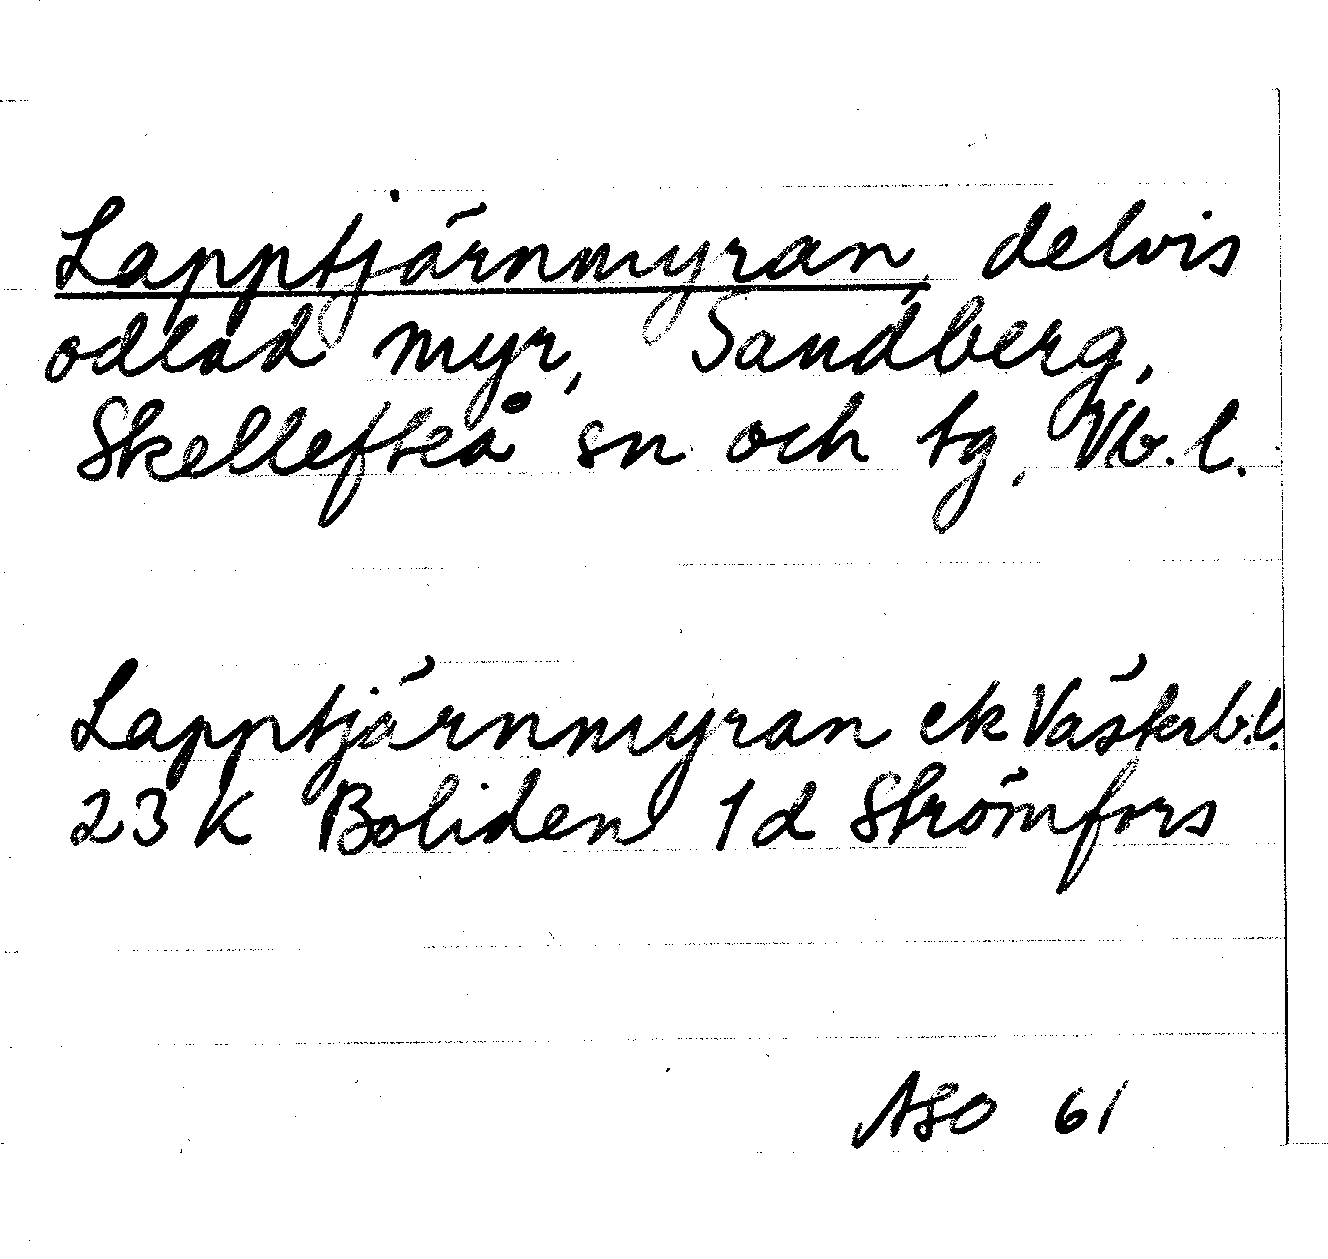 Lapptjärnmyran, delvis
odlad myr, Sandberg,
Skellefteå sn och tg, Vb. l.
Lapptjärnmyran ek Västerb.l.
23 K Boliden 1d Strömfors
ASO 61